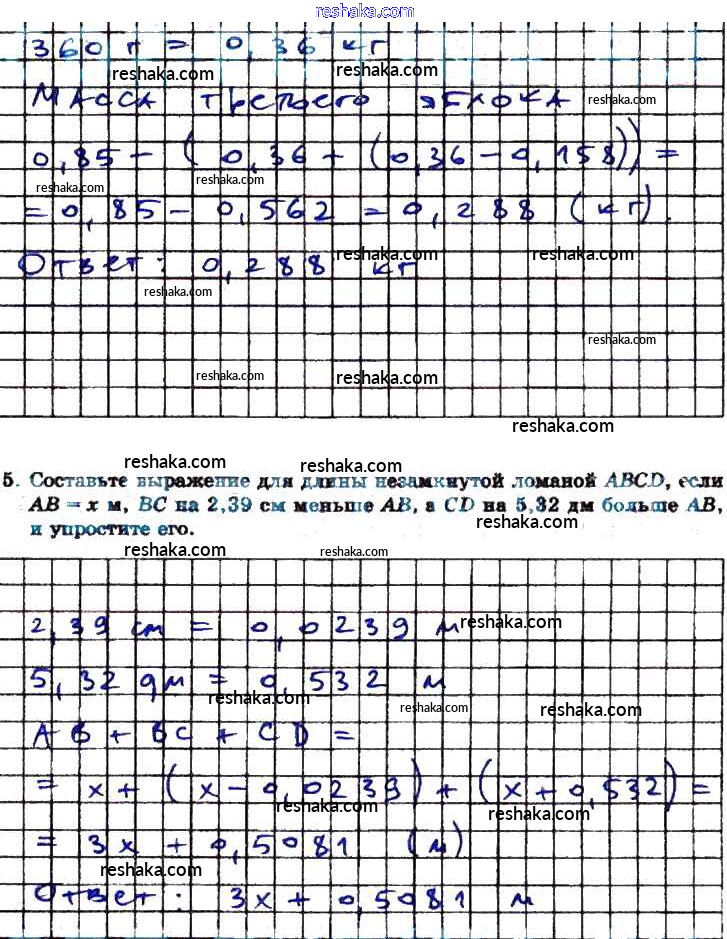 reshaka.com
360 г = 0,36 кг
reshaka.com reshaka.com
Масса третьего яблока reshaka.com
0,85 - (0,36 + (0,36 - 0,158)) =
reshaka.com reshaka.com
= 0,85 - 0,562 = 0,288 (кг).
reshaka.com reshaka.com
Ответ: 0,288 кг
reshaka.com
reshaka.com
reshaka.com reshaka.com
reshaka.com
reshaka.com reshaka.com
5. Составьте выражение для длины незамкнутой ломаной ABCD, если
AB = x м, BC на 2,39 см меньше AB, а CD на 5,32 дм больше AB,
reshaka.com
и упростите его.
reshaka.com
2,39 см = 0,0239 м
reshaka.com
5,32 дм = 0,532 м
reshaka.com reshaka.com reshaka.com
AB + BC + CD =
= x + (x - 0,0239) + (x + 0,532) =
reshaka.com reshaka.com
= 3x + 0,5081 (м)
reshaka.com
Ответ: 3x + 0,5081 м